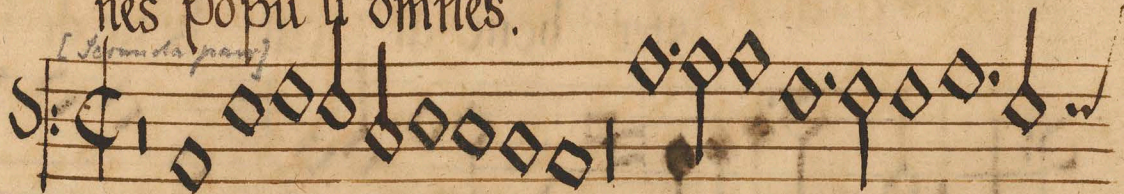 nes populi omnes.
[Secunda pars]